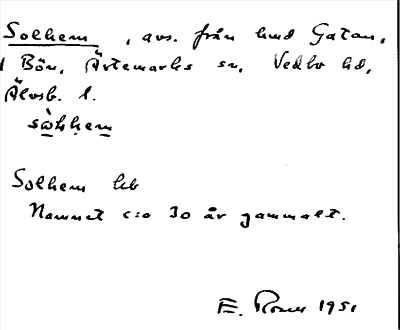 Solhem, avs. från hmd Gatan,
i Bön, Ärtemarks sn, Vedbo hd,
Älvsb. l.
Solhem lht
Namnet c:a 30 år gammalt.
E. Rosen 1951